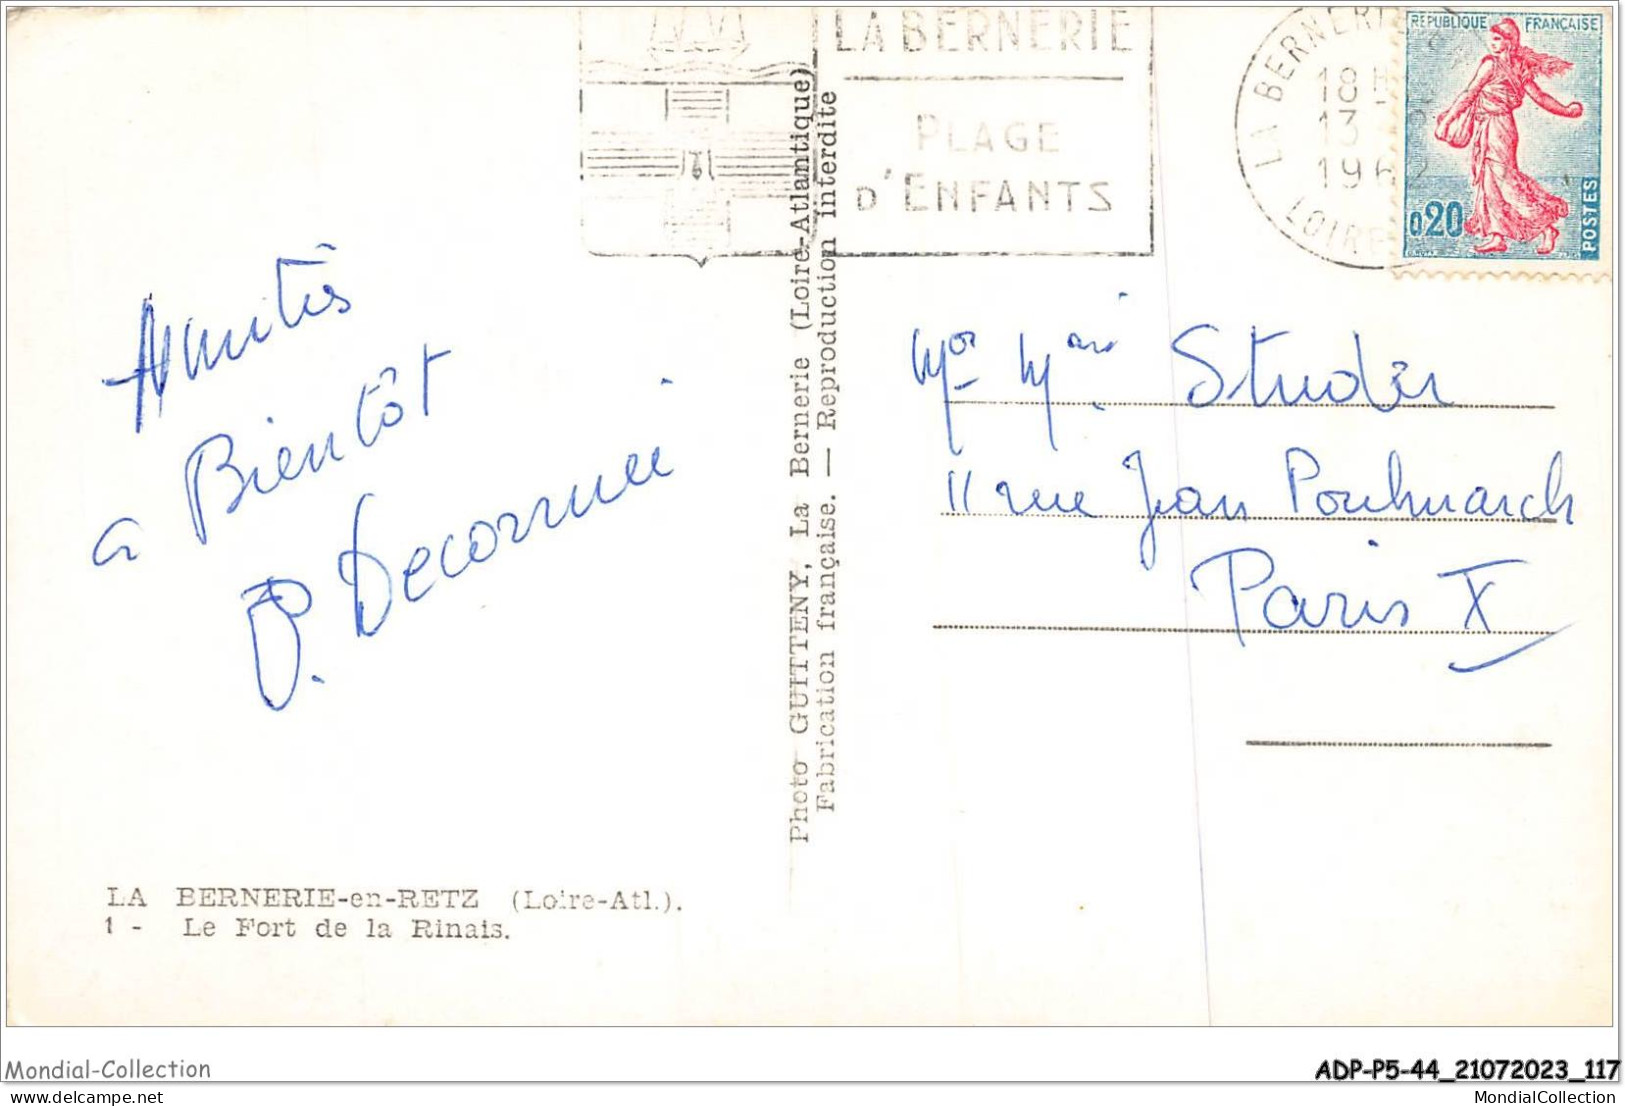 LA BERNERIE
PLAGE
D'ENFANTS
LA BERNERIE
18 H
13
1962
LOIRE
REPUBLIQUE FRANÇAISE
0,20
POSTES
Amitiés
a Bientôt
P. Decornui
Photo GUITTENY, La Bernerie (Loire-Atlantique)
Fabrication française. — Reproduction interdite
Studer
11 rue Jean Poulmarch
Paris X
LA BERNERIE-en-RETZ (Loire-Atl.).
1 - Le Fort de la Rinais.
Mondial-Collection
ADP-P5-44_21072023_117
delcampe.net
MondialCollection